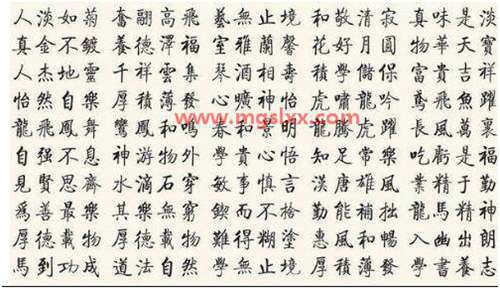 人淡如菊 奮翮高飛 藝無止境 和敬清寂 真味是淡
真金不鍍 養德澤福 室雅蘭馨 花好月圓 物華天寶
人杰地靈 千祥雲集 琴酒相 學儲 富貴吉祥
怡然自樂 厚積薄發 心曠神怡 虎嘯龍吟 鳶飛魚躍
龍飛鳳舞 鸞鳳和鳴 春和景明 龍騰虎躍 長風萬裏
www.mgslxx.com
自強不息 神游物外 學貴心悟 知足常樂 吃虧是福
見賢思齊 水滴石穿 敏事慎言 漢唐雄風 業精于勤
爲善最樂 其樂無窮 鍥而不捨 勤能補拙 龍馬精神
厚德載物 厚德載物 難得糊塗 惠風和暢 入幽出朗
馬到功成 道法自然 學無止境 厚積薄發 學書養志